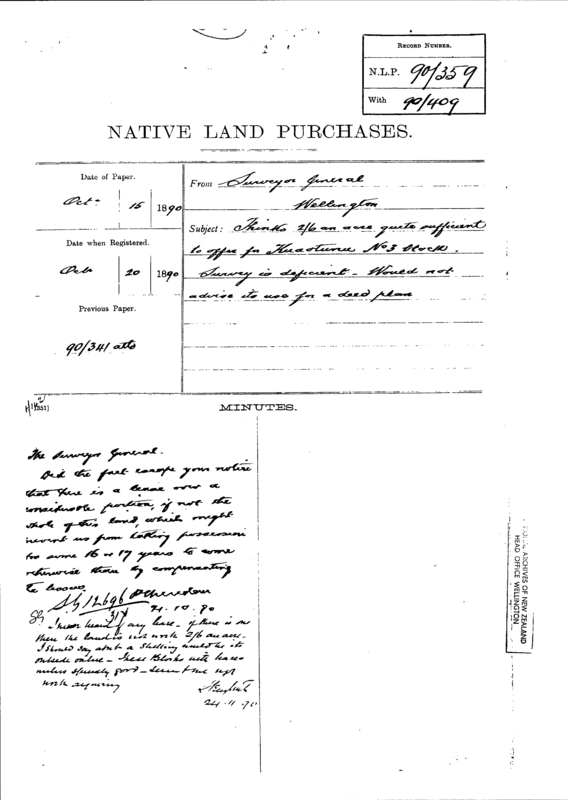 RECORD NUMBER.
N.L.P. 90/359
With 90/409
NATIVE LAND PURCHASES.
Date of Paper.
Oct. 15 1890
Date when Registered.
Oct 20 1890
Previous Paper.
90/341 atts
From Surveyor General
Wellington
Subject: Thinks 2/6 an acre quite sufficient
to offer for Kuaotunu No 3 Block.
Survey is deficient - Would not
advise its use for a deed plan
MINUTES.
The Surveyor General.
Did the fact escape your notice
that there is a lease over a
considerable portion, if not the
whole of this land, which might
prevent us from taking possession
for some 16 or 17 years to come
otherwise than by compensating
the lessees
SG 12696
21.10.90
I never heard of any lease - if there is one
then the land is not worth 2/6 an acre.
I should say about a shilling would be its
outside value - These Blocks with leases
unless specially good - seem to me not
worth acquiring
24.11.90
ARCHIVES OF NEW ZEALAND
HEAD OFFICE WELLINGTON